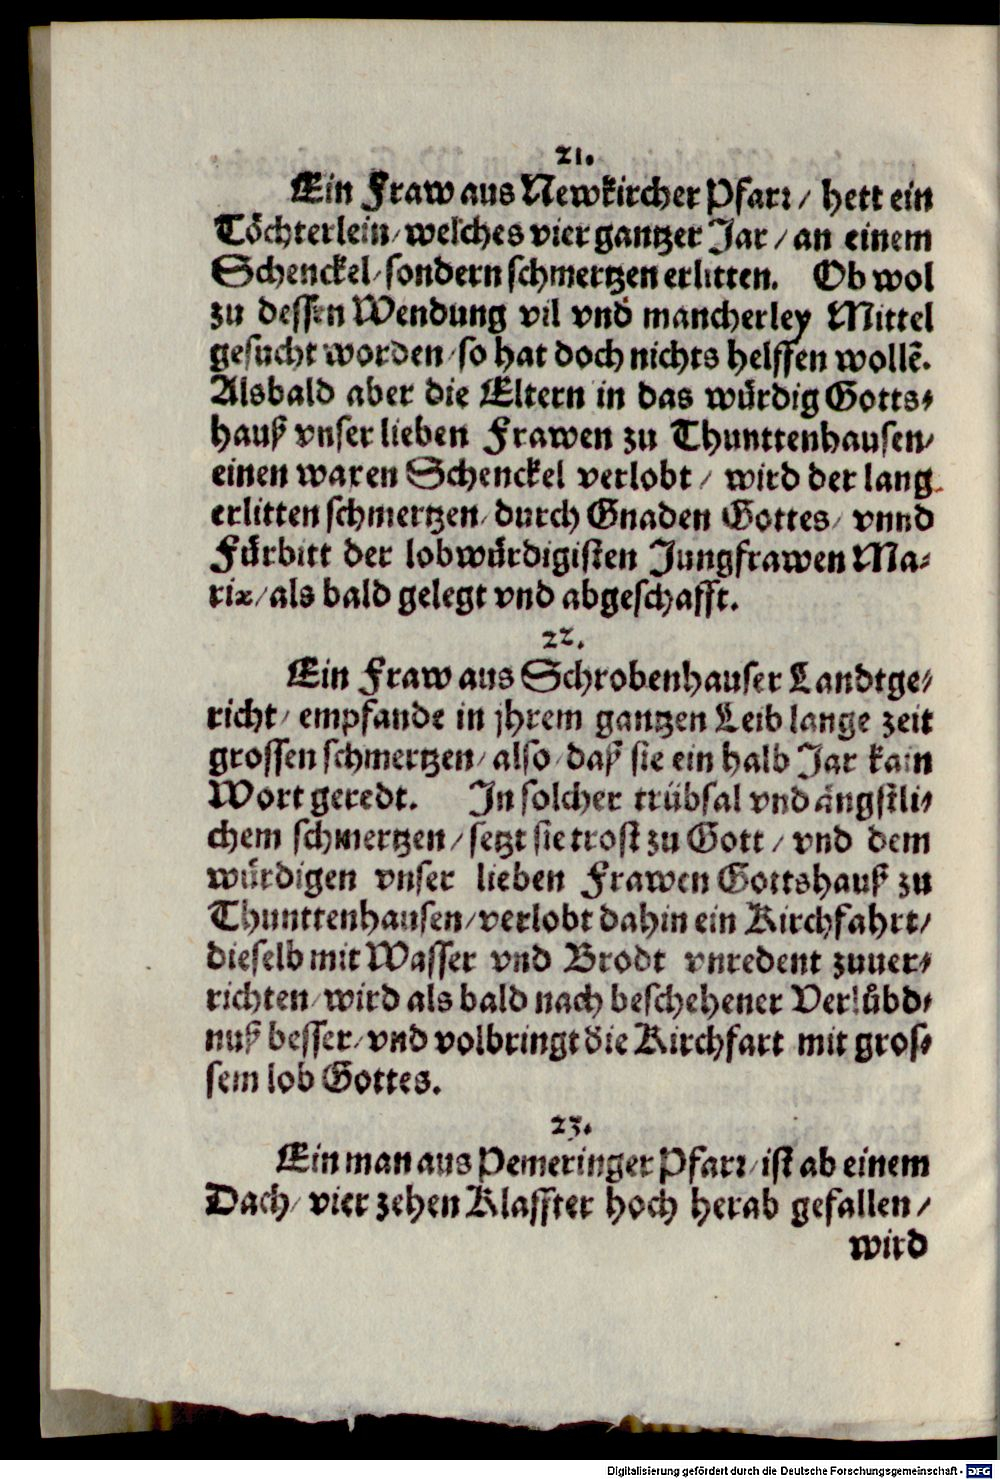 21.
Ein Fraw aus Newkircher Pfarr / hett ein
Töchterlein / welches vier gantzer Jar / an einem
Schenckel / sondern schmertzen erlitten. Ob wol
zu dessen Wendung vil vnd mancherley Mittel
gesucht worden / so hat doch nichts helffen wollẽ.
Alsbald aber die Eltern in das würdig Gotts-
hauß vnser lieben Frawen zu Thunttenhausen /
einen waxen Schenckel verlobt / wird der lang
erlitten schmertzen / durch Gnaden Gottes / vnnd
Fürbitt der lobwürdigisten Jungfrawen Ma-
riæ / als bald gelegt vnd abgeschafft.
22.
Ein Fraw aus Schrobenhauser Landtge-
richt / empfande in jhrem gantzen Leib lange zeit
grossen schmertzen / also / daß sie ein halb Jar kain
Wort geredt. In solcher trübsal vnd ängstli-
chem schmertzen / setzt sie trost zu Gott / vnd dem
würdigen vnser lieben Frawen Gottshauß zu
Thunttenhausen / verlobt dahin ein Kirchfahrt /
dieselb mit Wasser vnd Brodt vnredent zuuer-
richten / wird als bald nach beschehener Verlübd-
nuß besser / vnd volbringt die Kirchfart mit gros-
sem lob Gottes.
23.
Ein man aus Pemeringer Pfarr / ist ab einem
Dach / vier zehen Klaffter hoch herab gefallen /
wird
Digitalisierung gefördert durch die Deutsche Forschungsgemeinschaft - DFG